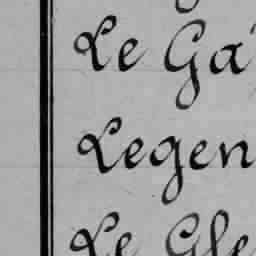 Le Ga
Legen
Le Gle